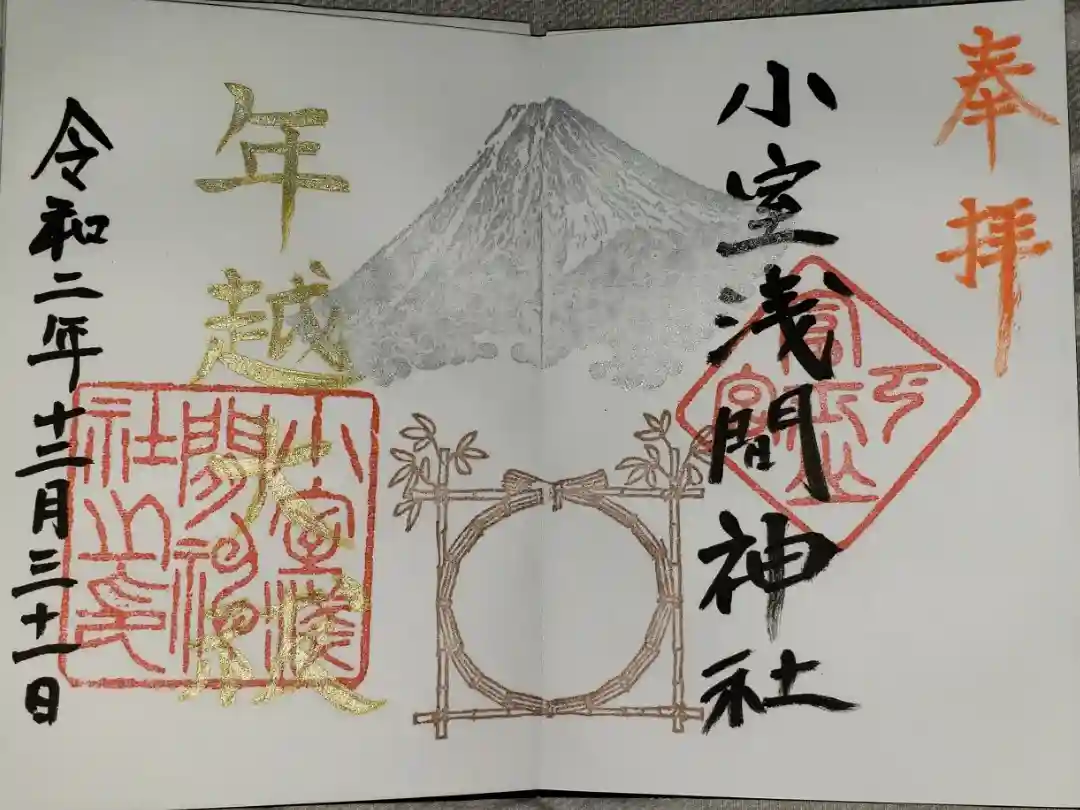 奉拝
小室浅間神社
富士山
下宮
年越大祓
小室浅
間神
社之印
令和二年十二月三十一日